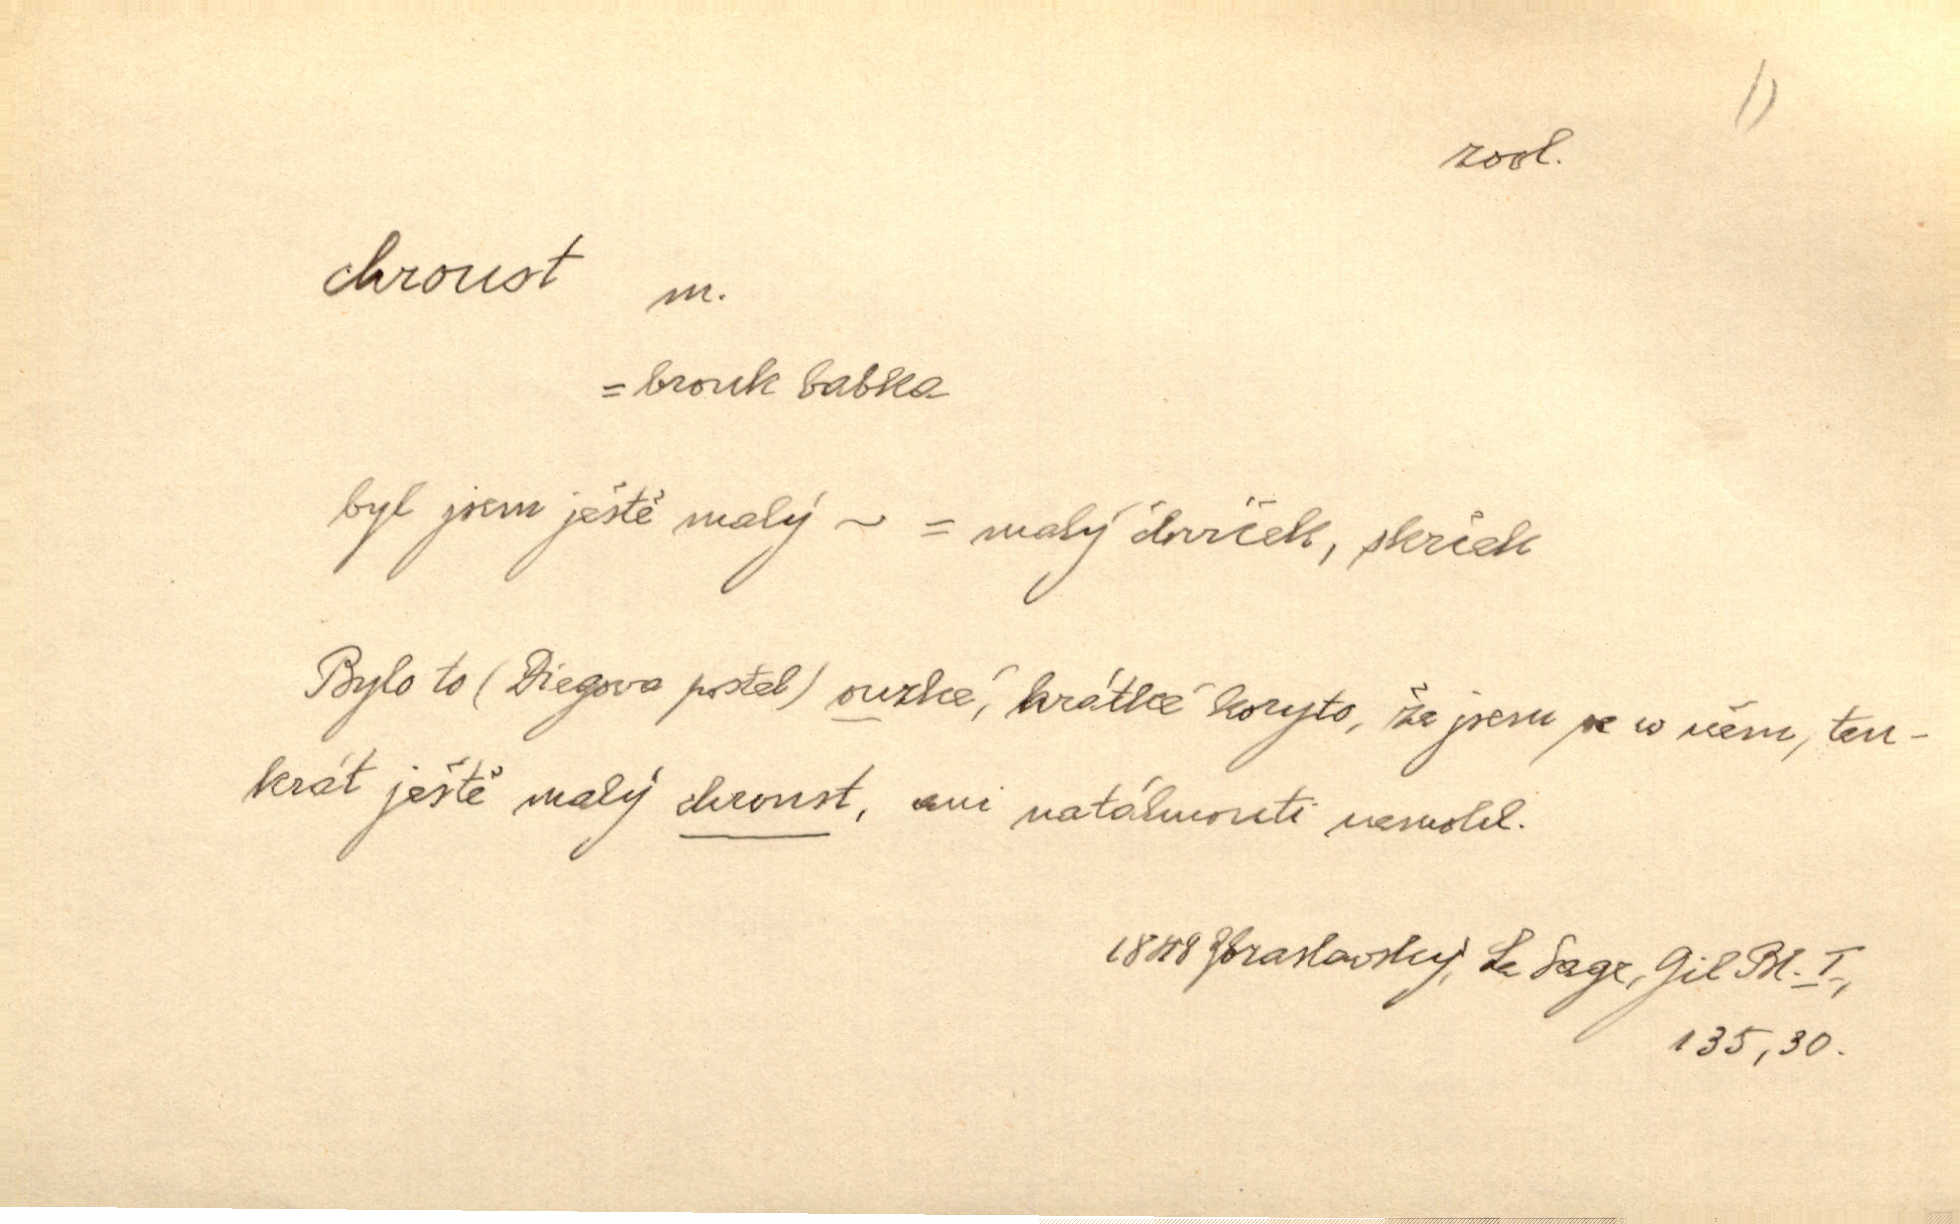 1)
zool.
chroust m.
= brouk babka
byl jsem ještě malý ~ = malý črvíček, skrček
Bylo to (Diegova postel) ouzké, krátké koryto, že jsem se w něm, ten-
krát ještě malý chroust, ani natáhnouti nemohl.
Zbraslavský, Le Sage, Gil Bl. I,
135, 30.